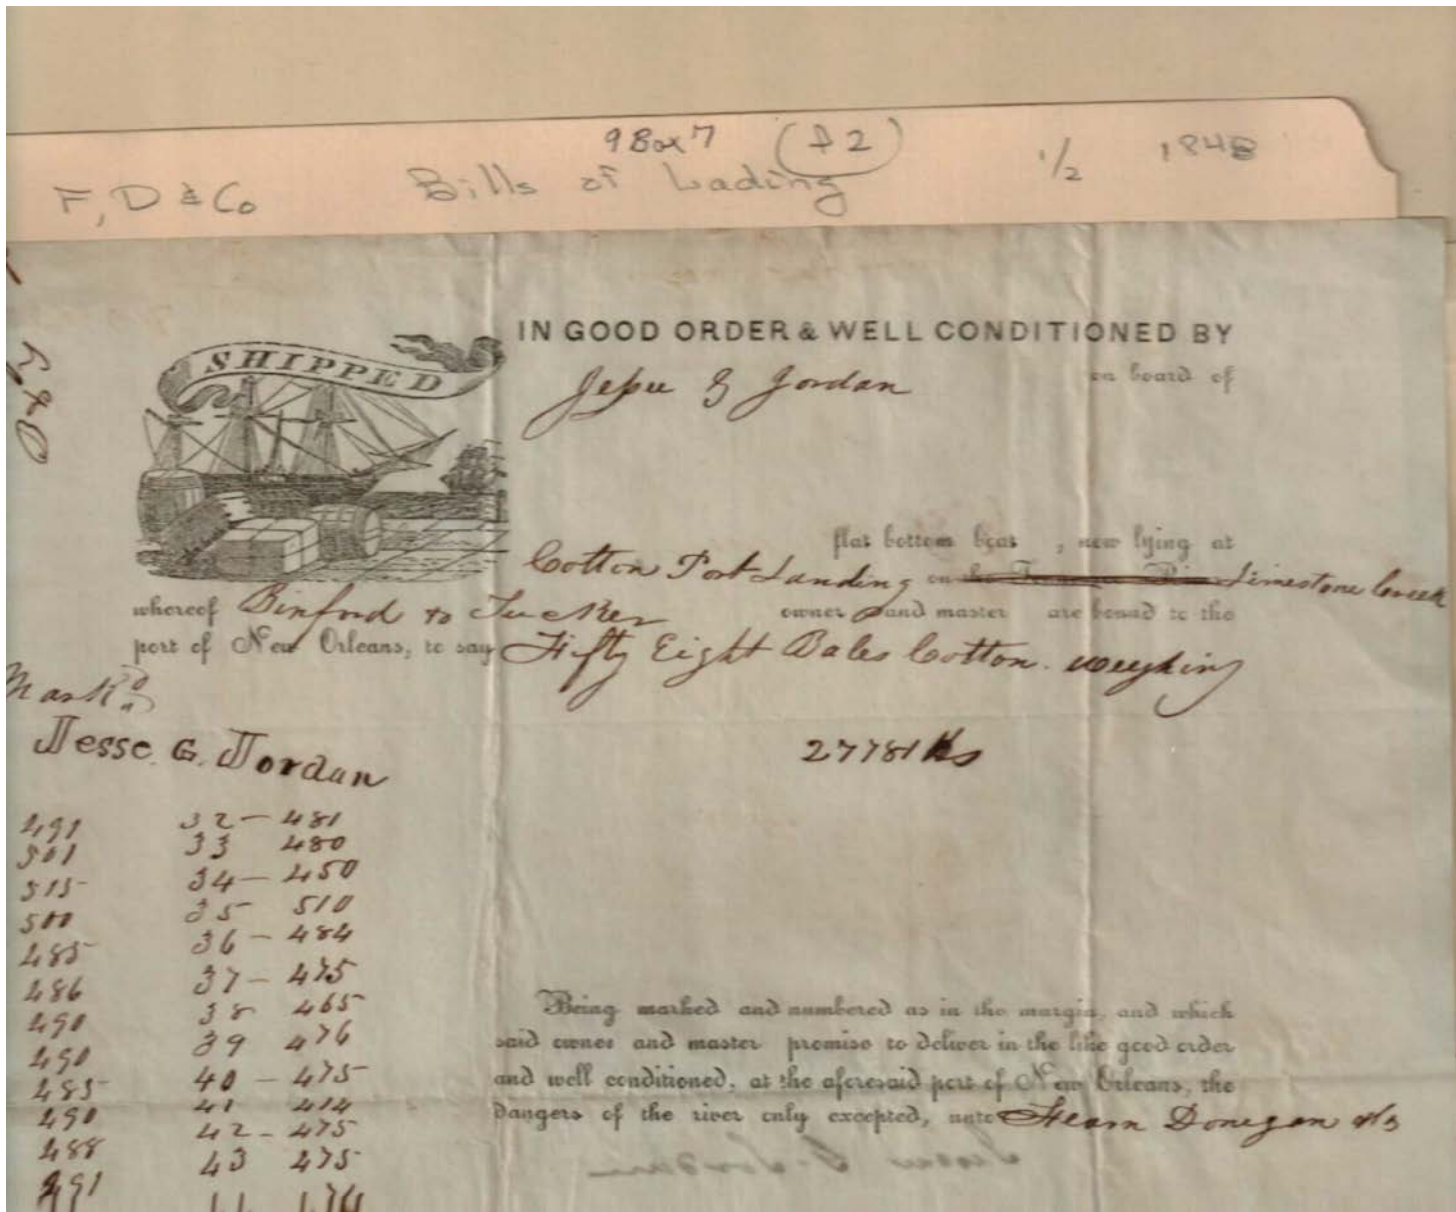 9 Box 7 (f 2) 1/2 1848
F, D & Co Bills of Lading
SHIPPED
IN GOOD ORDER & WELL CONDITIONED BY
Jesse G Jordan on board of
flat bottom boat, now lying at
Cotton Port Landing on the Tennessee River Limestone Creek
whereof Binford & Tucker owner and master are bound to the
port of New Orleans, to say Fifty Eight Bales Cotton. weighing
Mark'd
Jesse. G. Jordan
27781 lbs
491 32 - 481
501 33 480
515 34 - 450
500 35 510
485 36 - 484
486 37 - 475
490 38 465
490 39 476
485 40 - 475
490 41 414
488 42 - 475
491 43 475
Being marked and numbered as in the margin, and which
said owner and master promise to deliver in the like good order
and well conditioned, at the aforesaid port of New Orleans, the
dangers of the river only excepted, unto Fearn Donegan &